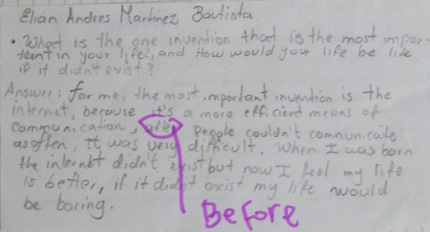 Elian Andres Martinez Bautista.
• What is the one invention that is the most impor-
tant in your life?, and How would your life be life
if it didnt exist?
Answer: for me, the most important invention is the
internet, because it's a more efficient means of
communication, after people couldn't communicate
as often, It was very difficult. When I was born
the internet didn't exist but now I feel my life
is better, if it didnt exist my life would
be boring.
Before